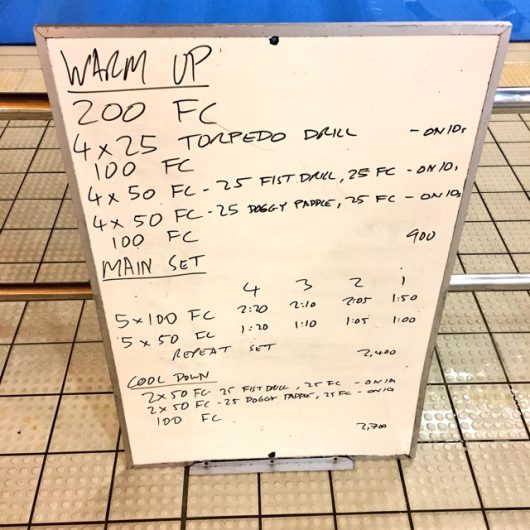 WARM UP
200 FC
4 x 25 TORPEDO DRILL - ON 10s
100 FC
4 x 50 FC - 25 FIST DRILL, 25 FC - ON 10s
4 x 50 FC - 25 DOGGY PADDLE, 25 FC - ON 10s
100 FC
900
MAIN SET
4 3 2 1
5 x 100 FC 2:20 2:10 2:05 1:50
5 x 50 FC 1:20 1:10 1:05 1:00
REPEAT SET 2,400
COOL DOWN
2 x 50 FC - 25 FIST DRILL, 25 FC - ON 10s
2 x 50 FC - 25 DOGGY PADDLE, 25 FC - ON 10
100 FC
2,700